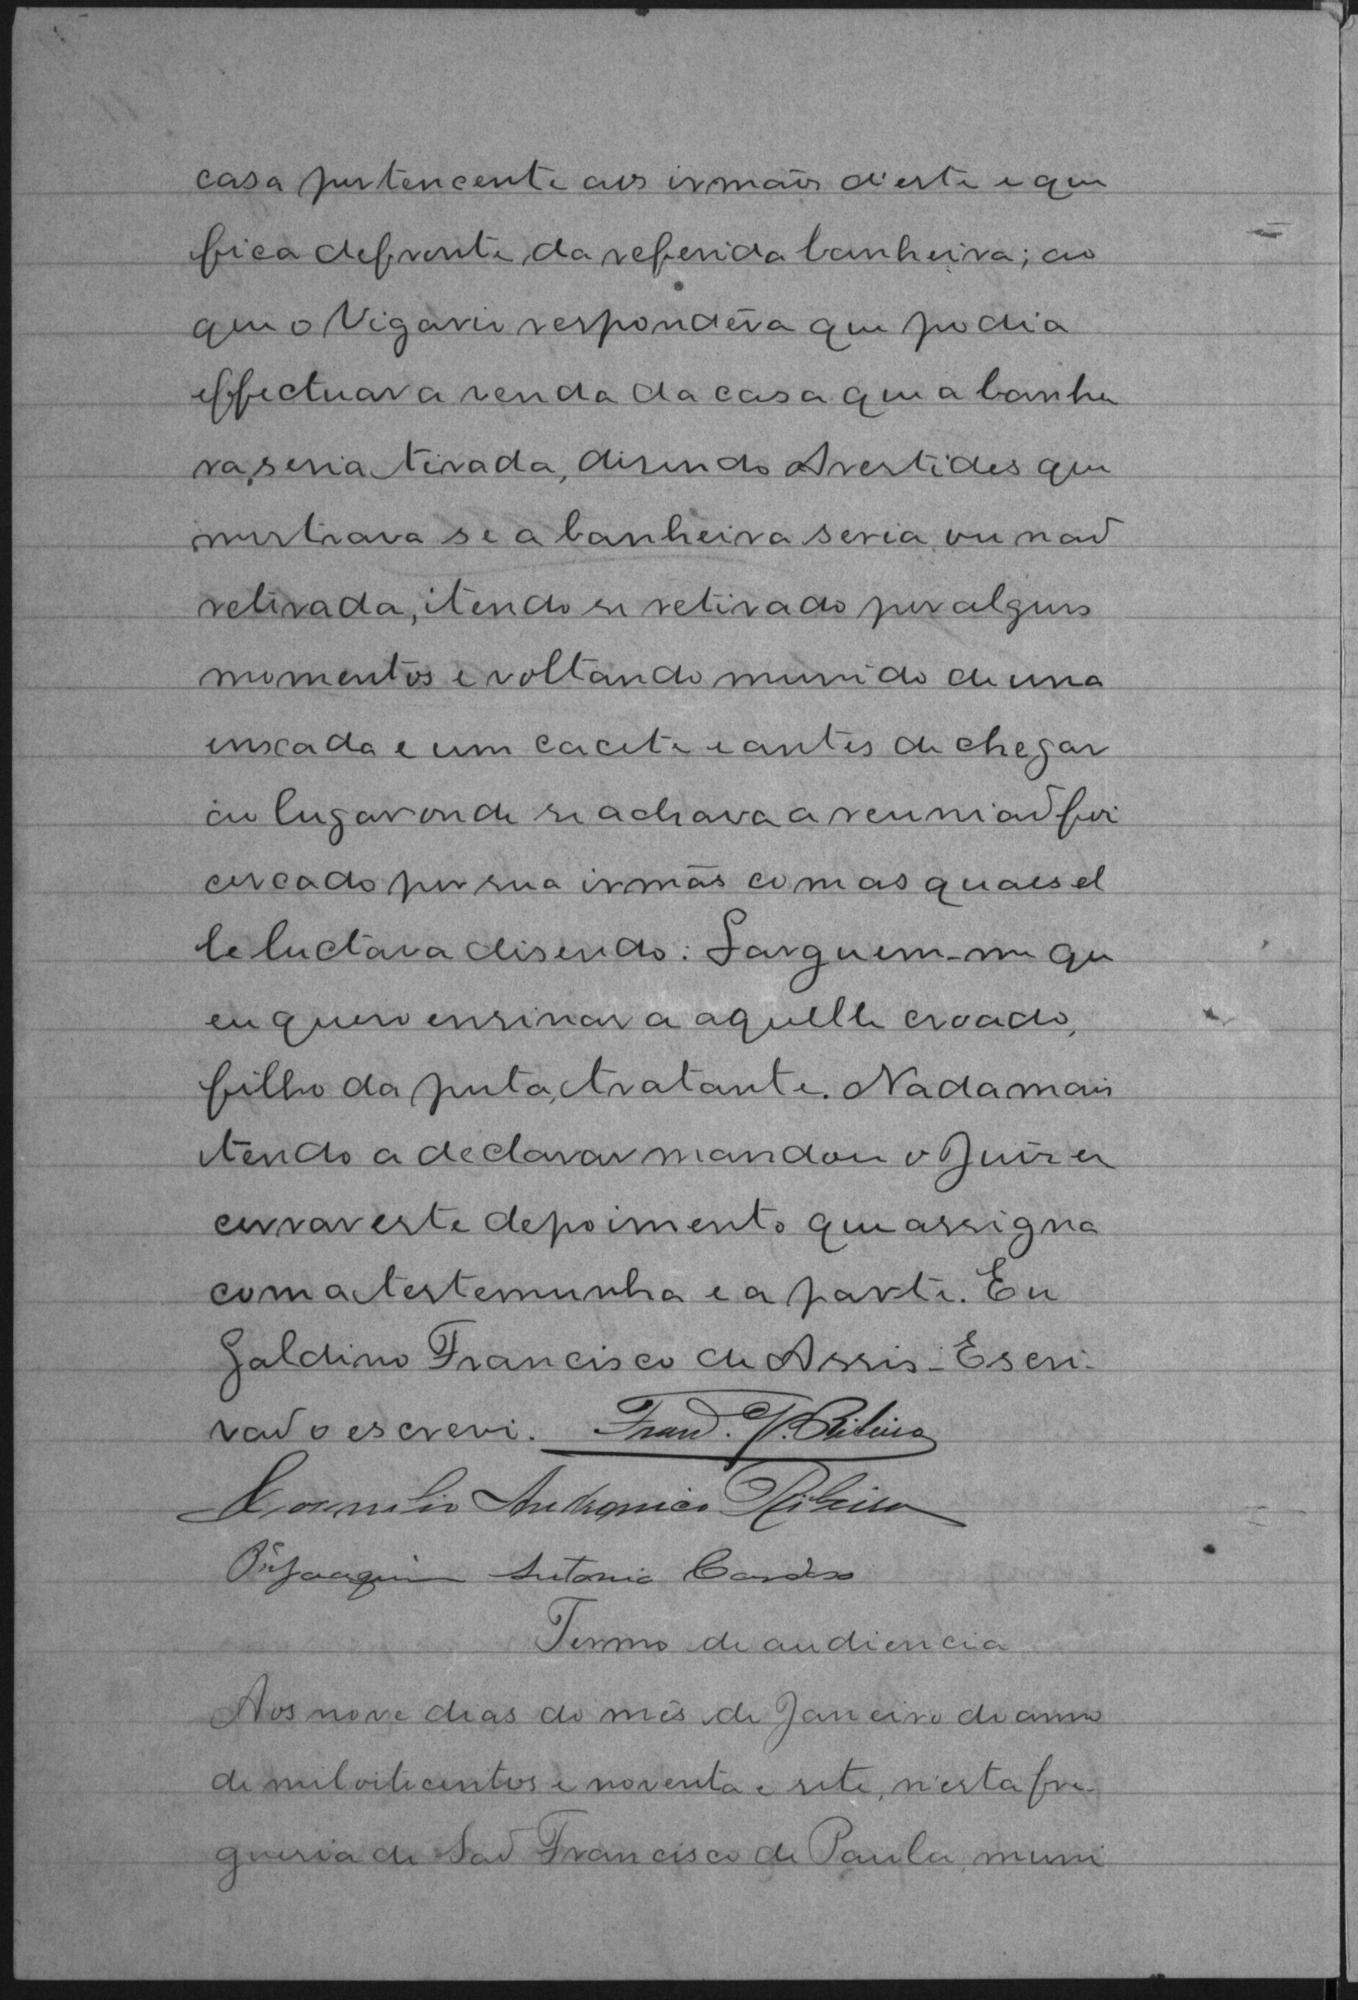 casa pertencente aos irmaõs d'este e que
fica defronte da referida banheira; ao
que o Vigario respondêra que podia
effectuar a venda da casa que a banhei
ra seria tirada, disendo Arestides que
mostrava se a banheira seria ou naõ
retirada, tendo se retirado por alguns
momentos e voltando munido de uma
enxada e um cacete e antes de chegar
ao lugar onde se achava a reuniaõ foi
cercado por sua irmãs com as quaes el
le luctava disendo: Larguem-me que
eu quero ensinar a aquelle croado,
filho da puta, tratante. Nada mais
tendo a declarar mandou o Juiz en
cerrar este depoimento que assigna
com a testemunha e a parte. Eu
Galdino Francisco de Assis - Escri-
vaõ o escrevi. Franco. P. Ribeiro
Cornelio Andronico Ribeiro
Pe Joaquim Antonio Cardoso
Termo de audiencia
Aos nove dias do mês de Janeiro do anno
de mil oitecentos e noventa e sete, n'esta fre-
guesia de Saõ Francisco de Paula, muni